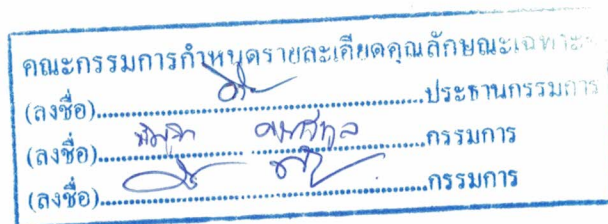 คณะกรรมการกำหนดรายละเอียดคุณลักษณะเฉพาะ
(ลงชื่อ)..........................................ประธานกรรมการ
(ลงชื่อ)..........................................กรรมการ
(ลงชื่อ)..........................................กรรมการ